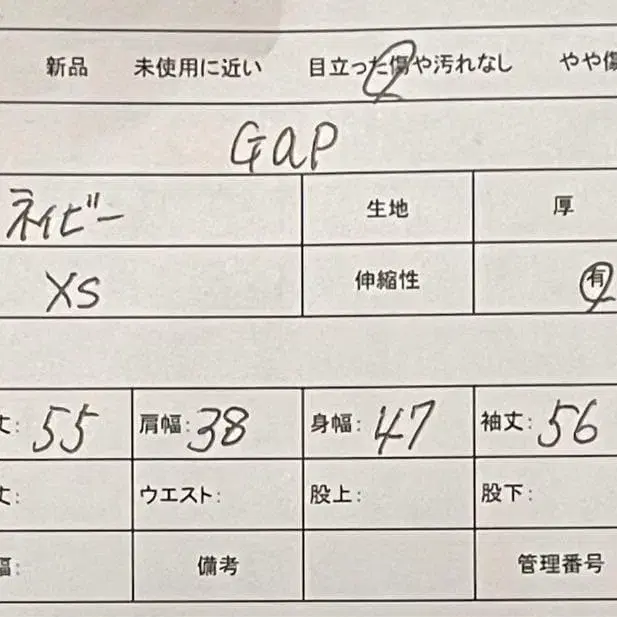 新品 未使用に近い 目立った傷や汚れなし やや傷
GAP
ネイビー 生地 厚
XS 伸縮性 有
丈: 55 肩幅: 38 身幅: 47 袖丈: 56
丈: ウエスト: 股上: 股下:
幅: 備考 管理番号